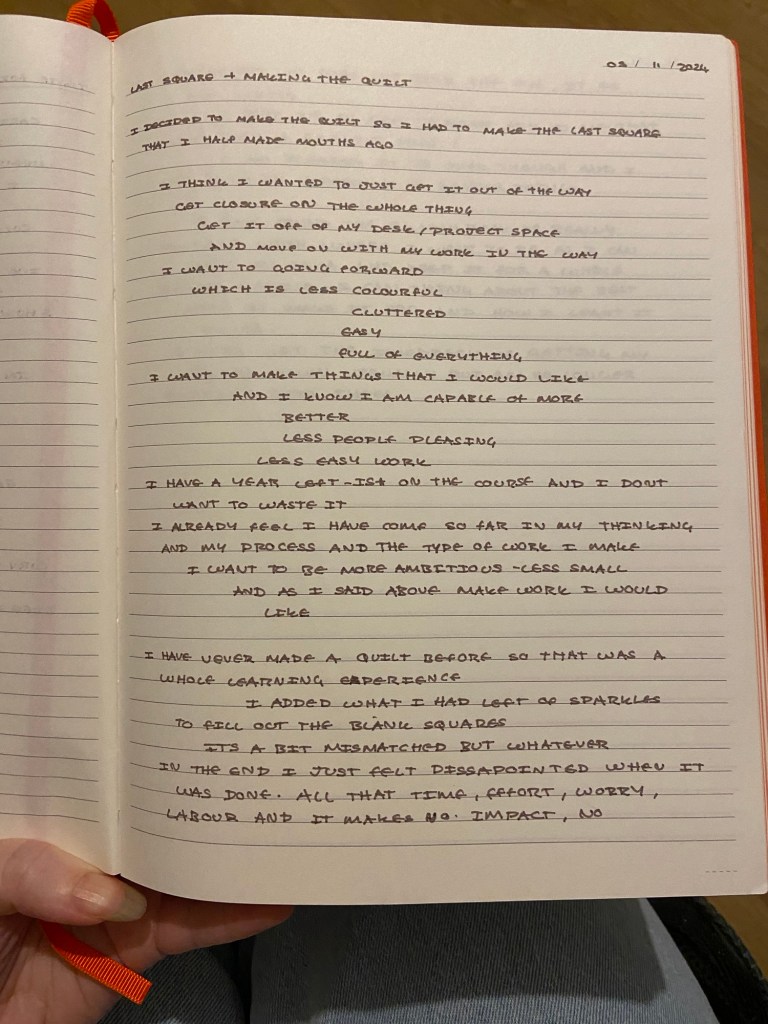 03/11/2024
LAST SQUARE + MAKING THE QUILT
I DECIDED TO MAKE THE QUILT SO I HAD TO MAKE THE LAST SQUARE
THAT I HALF MADE MOUTHS AGO
I THING I WANTED TO JUST GET IT OUT OF THE WAY
GET CLOSURE ON THE WHOLE THING
GET IT OFF OF MY DESK/PROJECT SPACE
AND MOVE ON WITH MY WORK IN THE WAY
I WANT TO GOING FORWARD
WHICH IS LESS COLOURFUL
CLUTTERED
EASY
FULL OF EVERYTHING
I WANT TO MAKE THINGS THAT I WOULD LIKE
AND I KNOW I AM CAPABLE OF MORE
BETTER
LESS PEOPLE PLEASING
LESS EASY WORK
I HAVE A YEAR LEFT-ISH ON THE COURSE AND I DONT
WANT TO WASTE IT
I ALREADY FEEL I HAVE COME SO FAR IN MY THINKING
AND MY PROCESS AND THE TYPE OF WORK I MAKE
I WANT TO BE MORE AMBITIOUS -LESS SMALL
AND AS I SAID ABOVE MAKE WORK I WOULD
LIKE
I HAVE NEVER MADE A QUILT BEFORE SO THAT WAS A
WHOLE LEARNING EXPERIENCE
I ADDED WHAT I HAD LEFT OF SPARKLES
TO FILL OUT THE BLANK SQUARES
ITS A BIT MISMATCHED BUT WHATEVER
IN THE END I JUST FELT DISSAPOINTED WHEN IT
WAS DONE. ALL THAT TIME, EFFORT, WORRY,
LABOUR AND IT MAKES NO. IMPACT, NO